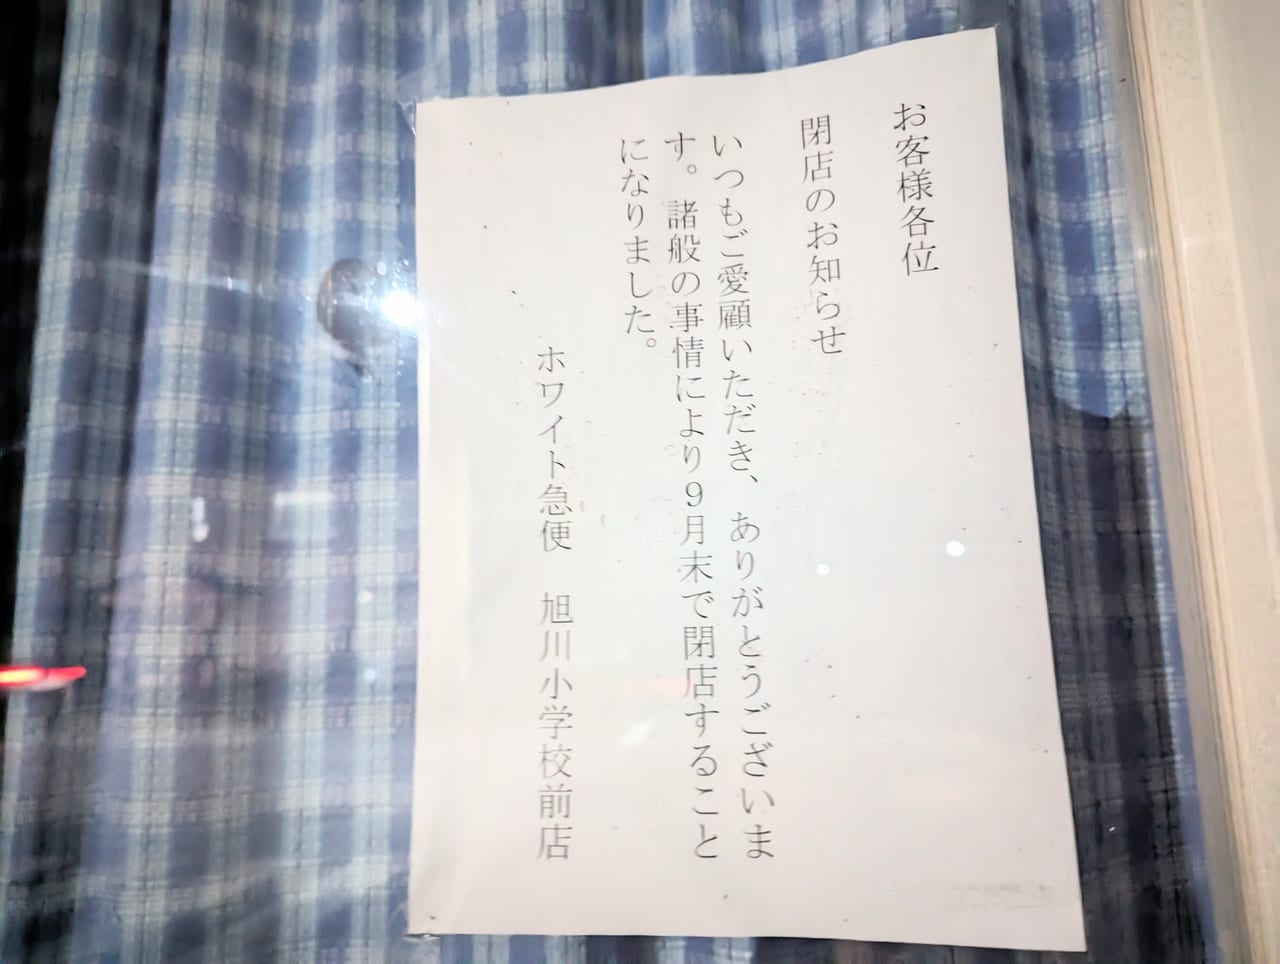 お客様各位
閉店のお知らせ
いつもご愛顧いただき、ありがとうございま
す。諸般の事情により９月末で閉店すること
になりました。
ホワイト急便　旭川小学校前店